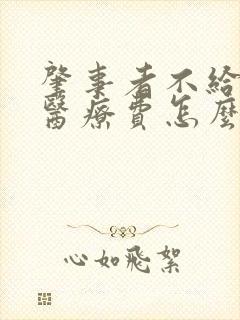 肇事者不給
醫療費怎麼
心如飛絮